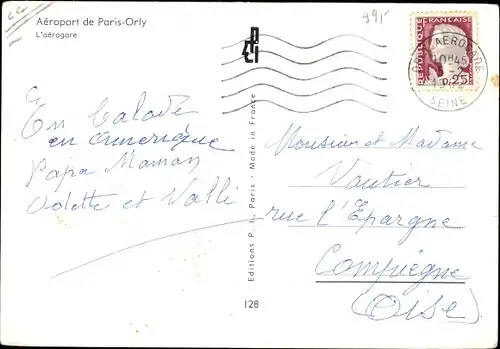 Aéroport de Paris-Orly
L'aérogare
En balade
en amérique
Papa Maman
Odette et
Editions P. I. - Paris - Made in France
128
REPUBLIQUE FRANÇAISE
0,25
ORLY AEROGARE
10H45
SEINE
Monsieur et Madame
Vautier
rue l'Épargne
Compiègne
(Oise)